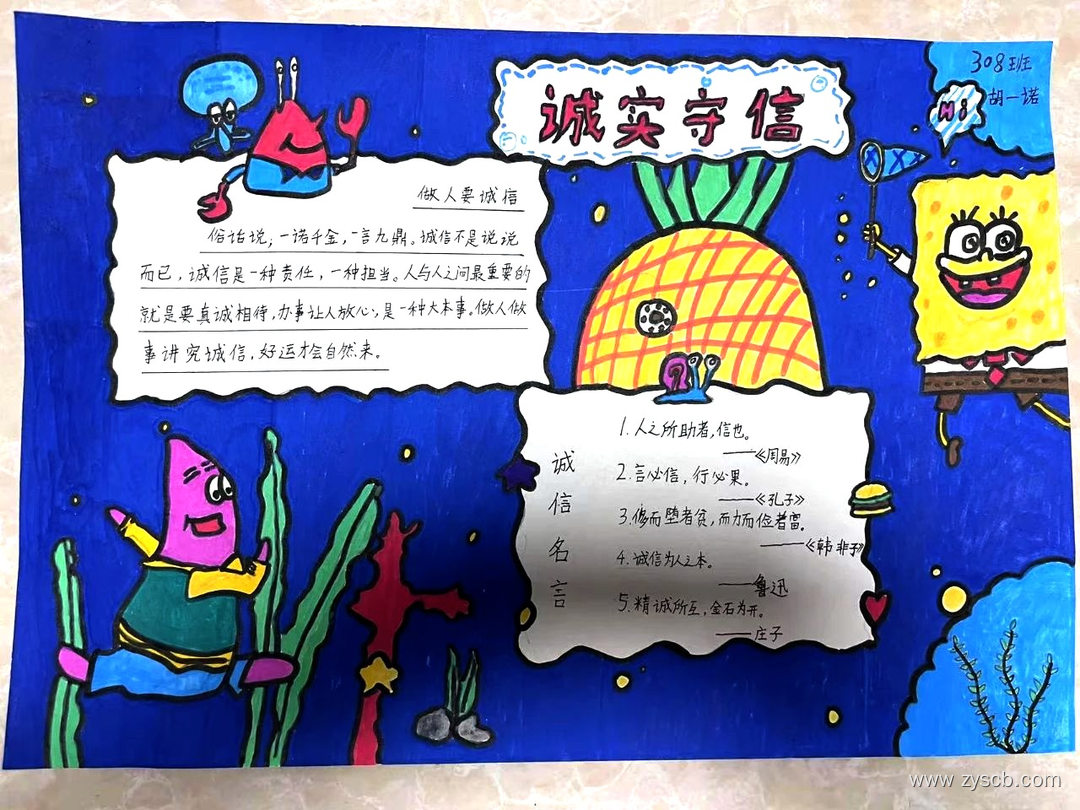 诚实守信
308班
胡一诺
Hi
做人要诚信
俗话说；一诺千金，一言九鼎。诚信不是说说
而已，诚信是一种责任，一种担当。人与人之间最重要的
就是要真诚相待，办事让人放心，是一种大本事。做人做
事讲究诚信，好运才会自然来。
诚信名言
1.人之所助者，信也。
——《周易》
2.言必信，行必果。
——《孔子》
3.侈而堕者贫，而力而俭者富。
——《韩非子》
4.诚信为人之本。
——鲁迅
5.精诚所至，金石为开。
——庄子
www.zyscb.com